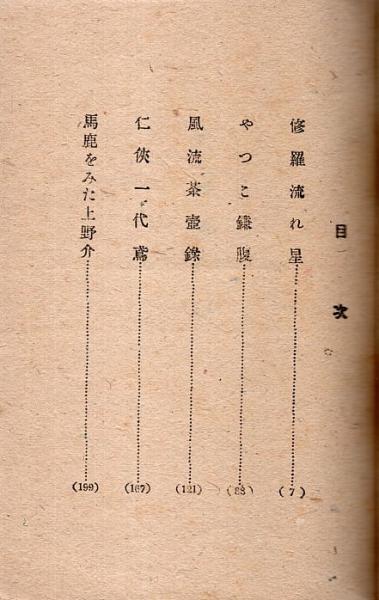 目次
修羅流れ星……(7)
やつこ鎌腹……(88)
風流茶壺録……(121)
仁侠一代鳶……(167)
馬鹿をみた上野介……(199)